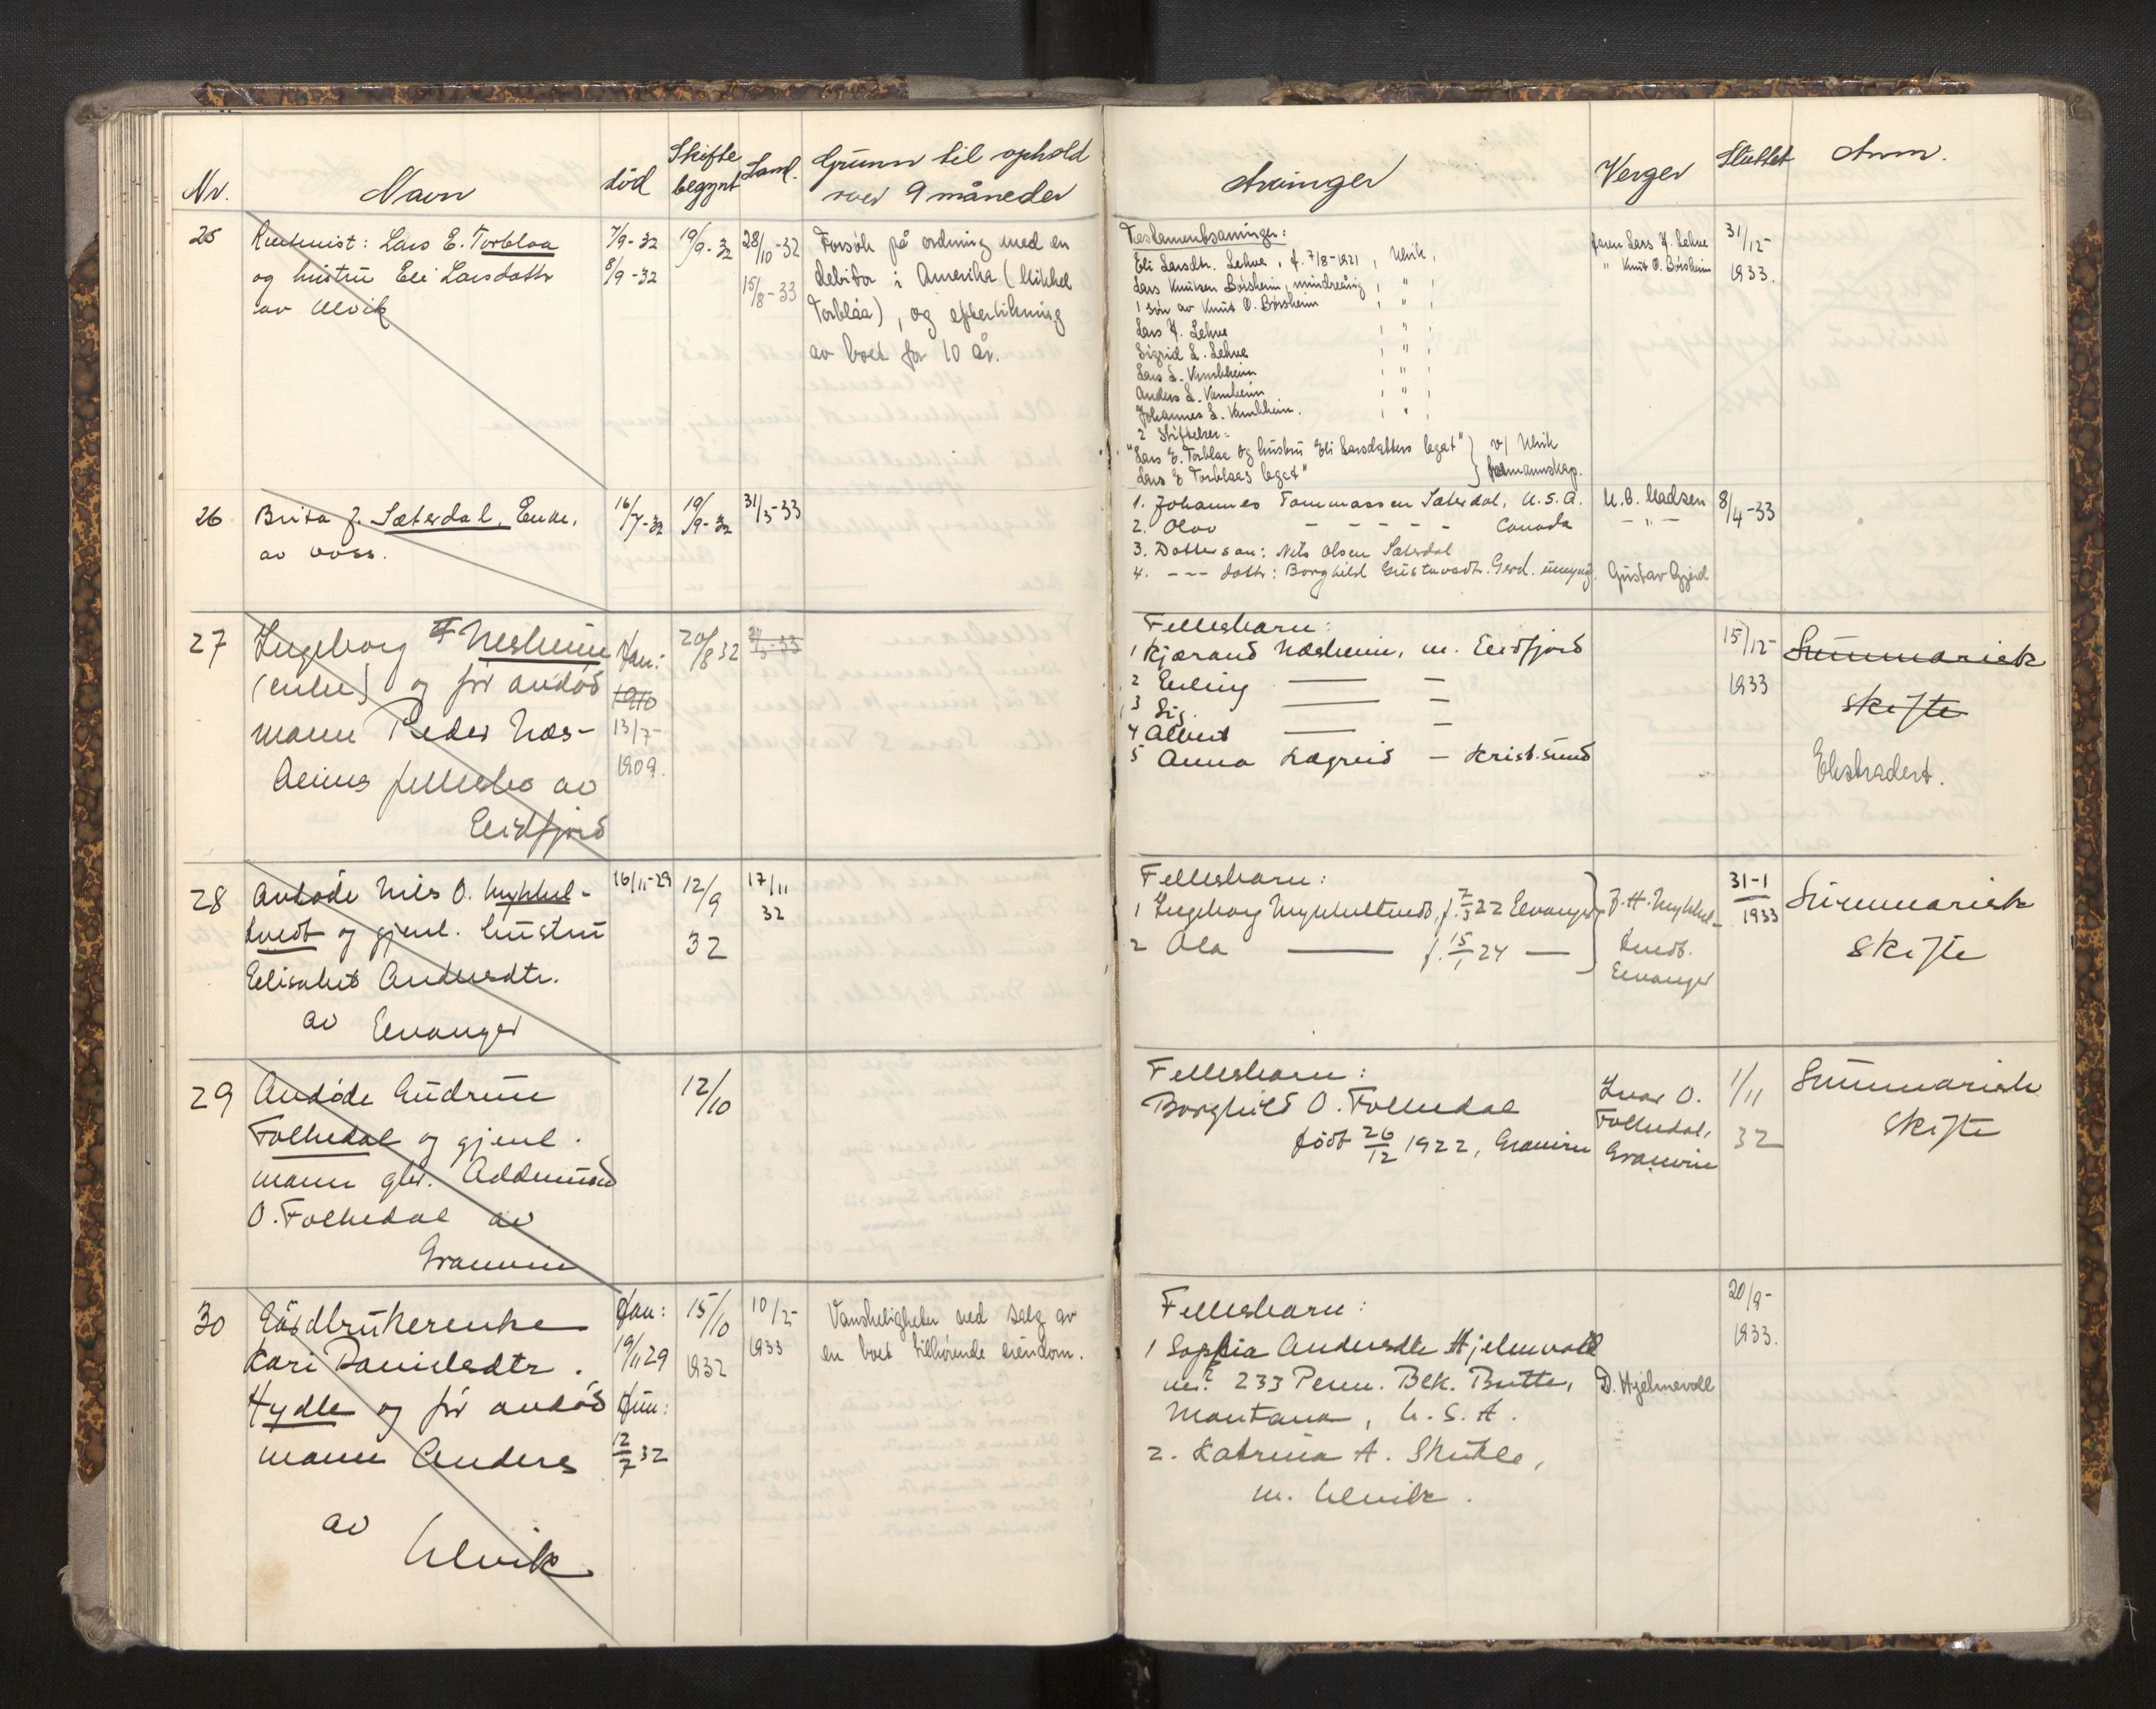 Nr.
Navn
død
Skifte begynt
Saml.
Grunn til ophold over 9 måneder
Arvinger
Verger
Sluttet
Anm.
25
Lars E. Torblaa
og hustru Eli Larsdottr
av Ulvik
7/9-32
8/9-32
19/9-32
28/10-32
15/8-33
Forsøk på ordning med en
debitor i Amerika (Mikkel
Torblåa), og efterlikning
av boet for 10 år.
Testamentsarvinger:
Eli Larsdtr. Lehne, f. 7/8-1921, Ulvik,
Lars Knutsen Børsheim, mindreårig, " ,
1 søn av Knut O. Børsheim , " ,
Lars J. Lehne , " ,
Sigrid L. Lehne , " ,
Lars L. Vambheim , " ,
Anders L. Vambheim , " ,
Johannes L. Vambheim. , " ,
2 Stiftelser:
"Lars E. Torblaa og hustru Eli Larsdatters legat" } v/ Ulvik
Lars E Torblaas legat" } formannskap.
faren Lars J. Lehne
" Knut O. Børsheim
31/12-
1933.
26
Brita J. Sæterdal, Enke,
av Voss.
16/7-32
19/9-32
31/3-33
1. Johannes Tommassen Sæterdal, U.S.A.
2. Olav - - - - - Canada
3. Dattersøn: Nils Olsen Sæterdal
4. --- dottr: Borghild Gustavsdtr. Gjerd. umynd.
U. B. Madsen
- " -
Gustav Gjerd
8/4-33
27
Ingeborg T Nesheim
(enke) og før avdød
mann Peder Næs-
heims fellesbo av
Eidfjord
han:
1910
13/7-
1909.
20/8 32
Fellesbarn:
1 Kjærand Næsheim, m. Eidfjord
2 Erling — —
3 Sig. — —
4 Albert — —
5 Anna Lægreid — Krist.sund
15/12-
1933
Summarisk
skifte
Ekstradert.
28
Avdøde Nils O. Mykkel-
tvedt og gjenl. hustru
Elisabet Andersdtr.
av Evanger
16/11-29
12/9
32
17/11
32
Fellesbarn:
1 Ingeborg Mykkeltvedt, f. 7/3 22 Evanger
2 Ola — f. 15/1 24 —
J. H. Mykkel-
tvedt.
Evanger
31-1
1933
Summarisk
skifte
29
Avdøde Gudrun
Folkedal og gjenl.
mann gbr. Oddmund
O. Folkedal av
Granvin
12/10
Fellesbarn:
Borghild O. Folkedal
født 26/12 1922, Granvin
Ivar O.
Folkedal,
Granvin
1/11
32
Summarisk
skifte
30
Gårdbrukerenke
Kari Danielsdtr.
Hydle og før avdød
mann Anders
av
Ulvik
han:
19/11 29
hun:
12/7 32
15/10
1932
10/2-
1933
Vanskeligheter ved salg av
en boet tilhørende eiendom.
Fellesbarn:
1 Sophia Andersdtr Hjelmvoll
233 Penn. Blk. Butte,
Montana, U. S. A.
2. Katrina A. Skutle,
m. Ulvik.
D. Hjelmevoll
20/9-
1933.